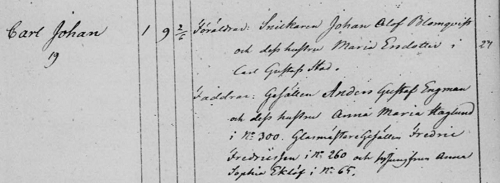 Carl Johan 1 9 2/2 Föräldrar: Snickaren Johan Olof Blomquist 27
19 och dess hustru Maria Ersdotter i
Carl Gustafs Stad.
Faddrar: Gesällen Anders Gustaf Engman
och dess hustru Anna Maria Haglund
i No 300. GlasmästareGesällen Fredric
Fredricssen i No 260 och Anna
Sophia Eklöf i No 65.